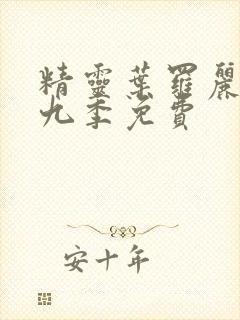 精靈葉羅麗
九季免費
安十年